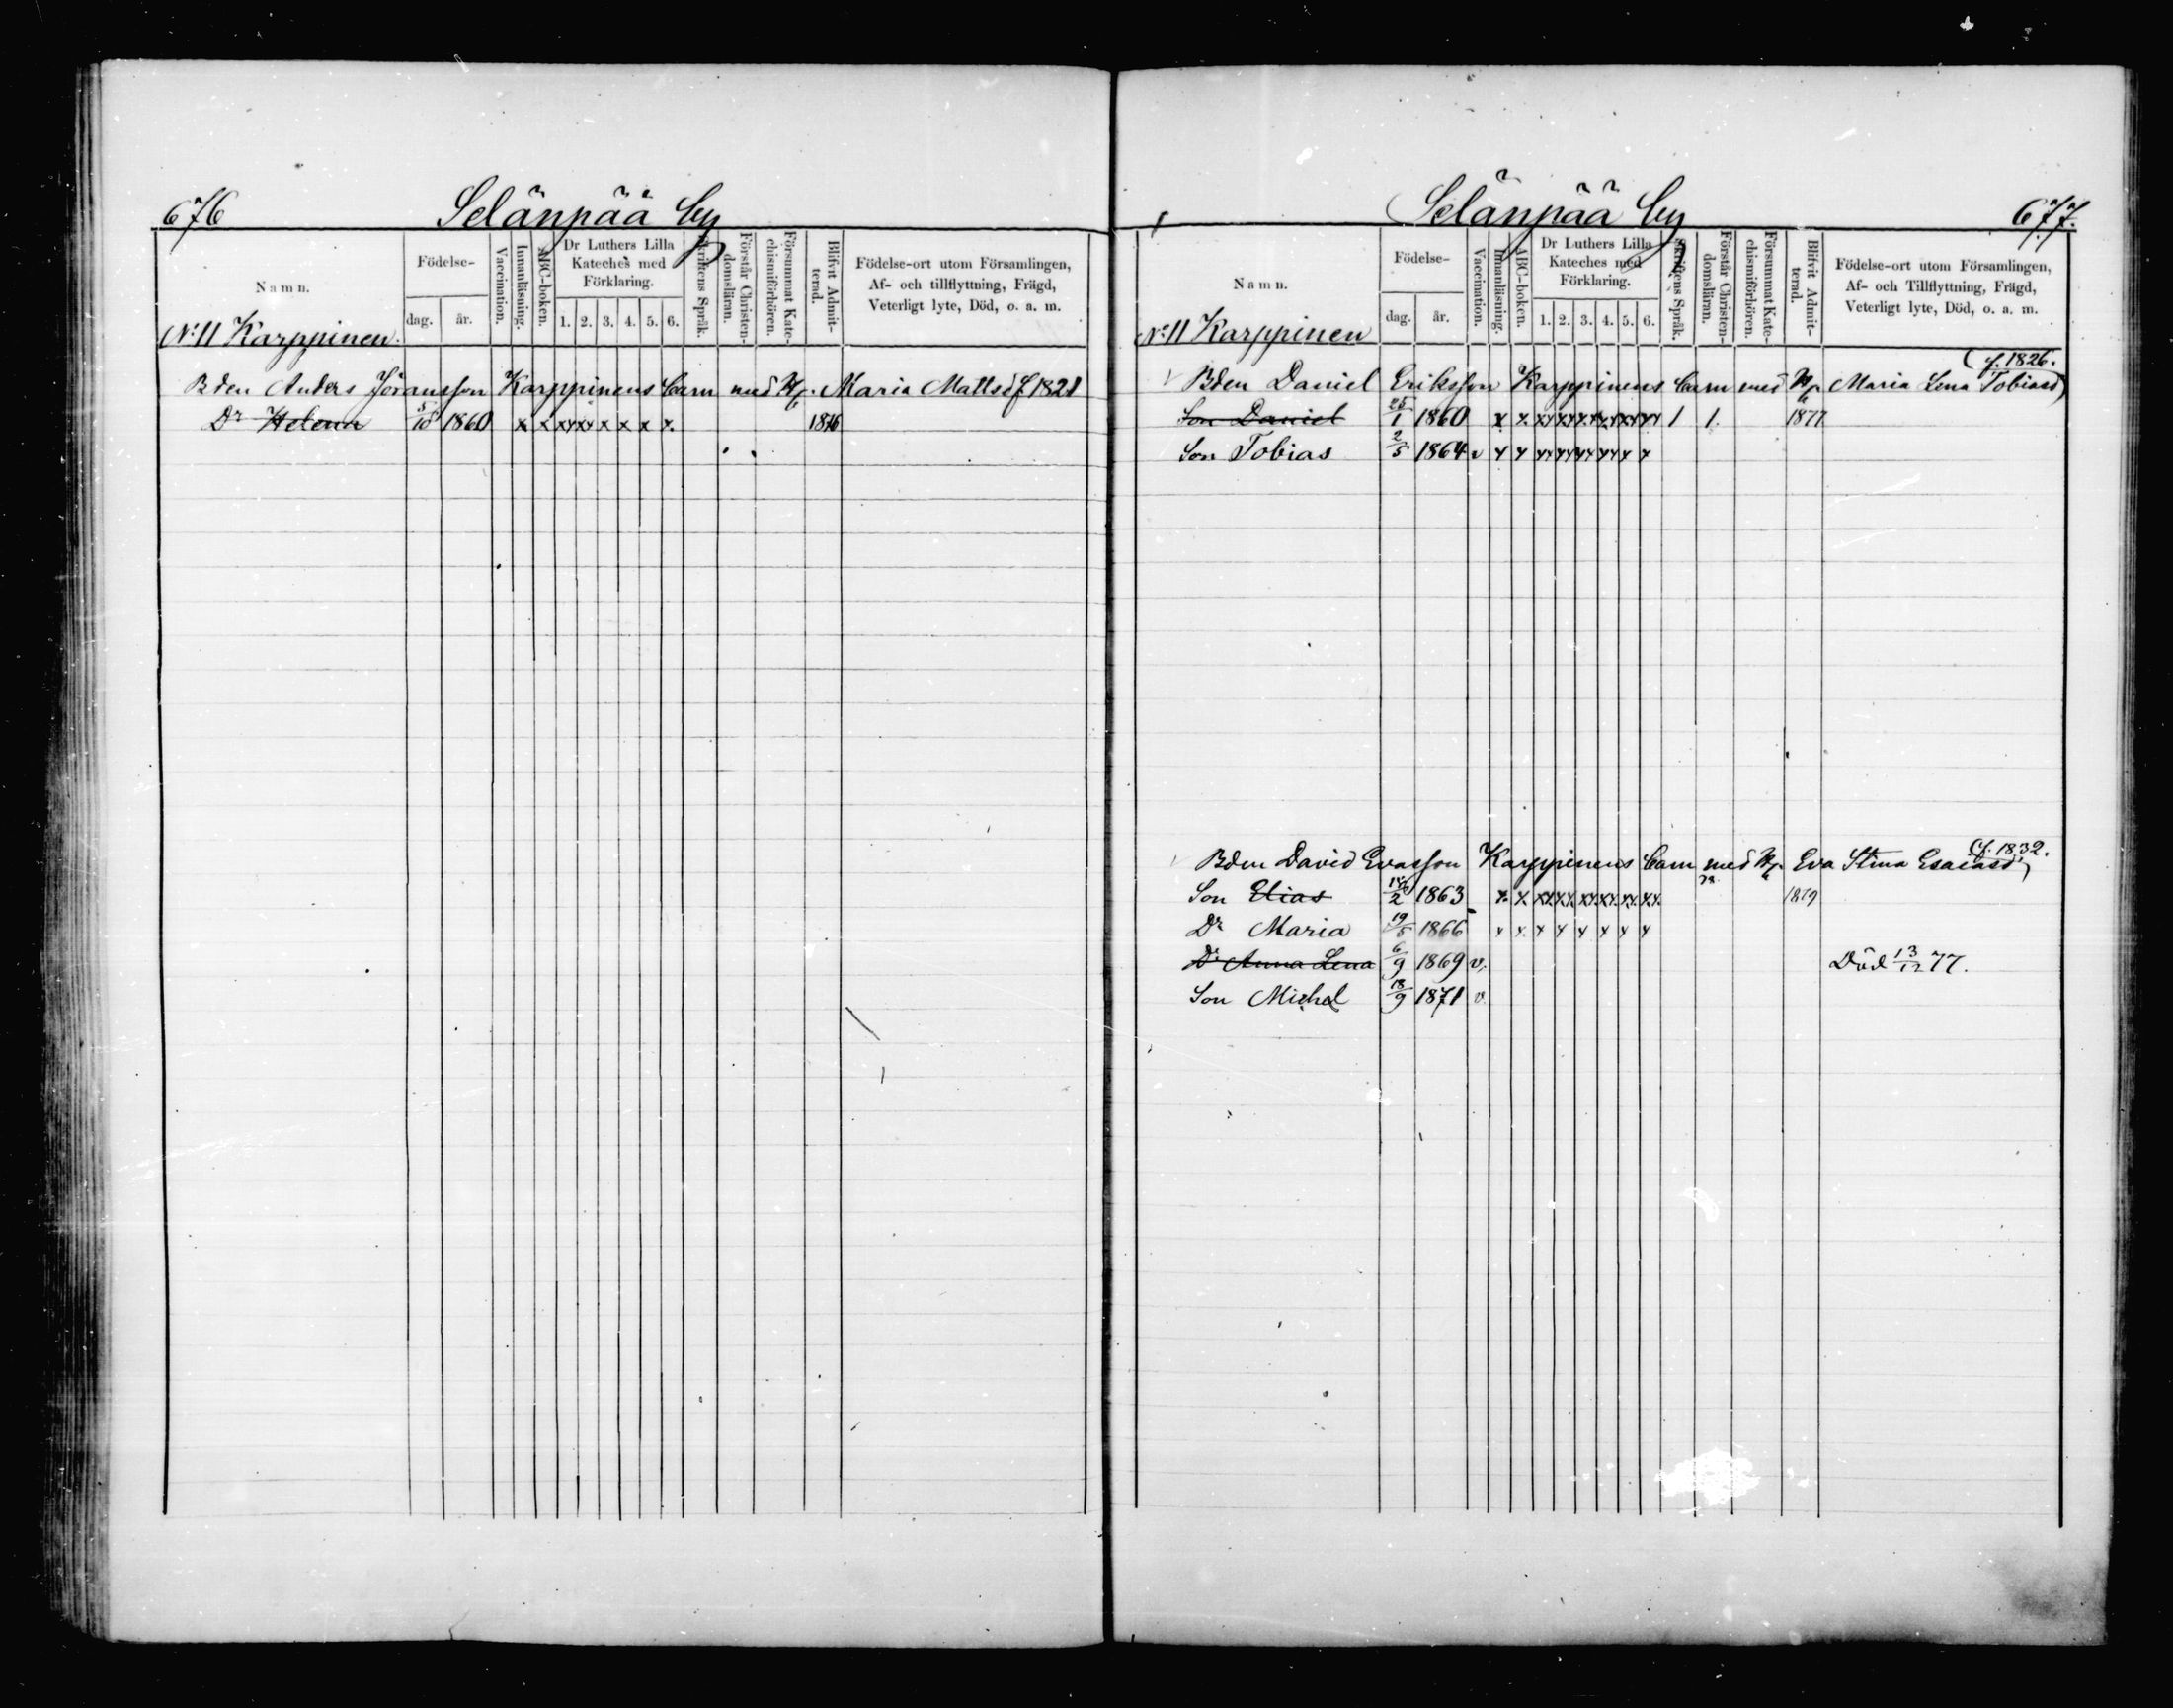 676 Selänpää by
Namn. Födelse- dag. år. Vaccination. Innanläsning. ABC-boken. Dr Luthers Lilla Kateches med Förklaring. 1. 2. 3. 4. 5. 6. Skriftens Språk. Förstår Christen-domsläran. Försummat Kate-chismiförhören. Blifvit Admit-terad. Födelse-ort utom Församlingen, Af- och tillflyttning, Frägd, Veterligt lyte, Död, o. a. m.
No 11 Karppinen.
Bden Anders Jöransson Karppinens barn med H. Maria Mattsd f. 1821
Dr Helena 5/10 1860 x x xx xx x x x x. 1876
Selänpää by 677.
Namn. Födelse- dag. år. Vaccination. Innanläsning. ABC-boken. Dr Luthers Lilla Kateches med Förklaring. 1. 2. 3. 4. 5. 6. Skriftens Språk. Förstår Christen-domsläran. Försummat Kate-chismiförhören. Blifvit Admit-terad. Födelse-ort utom Församlingen, Af- och Tillflyttning, Frägd, Veterligt lyte, Död, o. a. m.
No 11 Karppinen
(f. 1826.
Bden Daniel Eriksson Karppinens barn med H. Maria Lena Tobiasd)
Son Daniel 25/1 1860 x x xx xx xx xx xx xx 1 1. 1877
Son Tobias 2/5 1864 v x x xx xx xx xx x x
(f. 1832.
Bden David Evasson Karppinens barn med H. Eva Stina Esaiasd)
Son Elias /2 1863 x. x xx xx. xx xx. xx. xx. 1879
Dr Maria 19/5 1866 x x. x x x x x x
Dr Anna Lena 6/9 1869 v. Död 13/12 77.
Son Michel 18/9 1871 v.